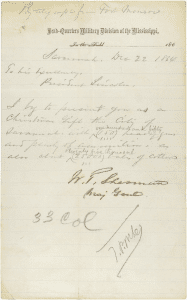 By telegraph from Fort Monroe
Head-Quarters Military Division of the Mississippi,
In the Field 186
Savannah Dec 22 1864
To his Excellency,
President Lincoln
I beg to present you as a
Christmas Gift the City of
Savannah with
and plenty of ammunition & as
also about bales of cotton
W. T. Sherman
Maj Genl